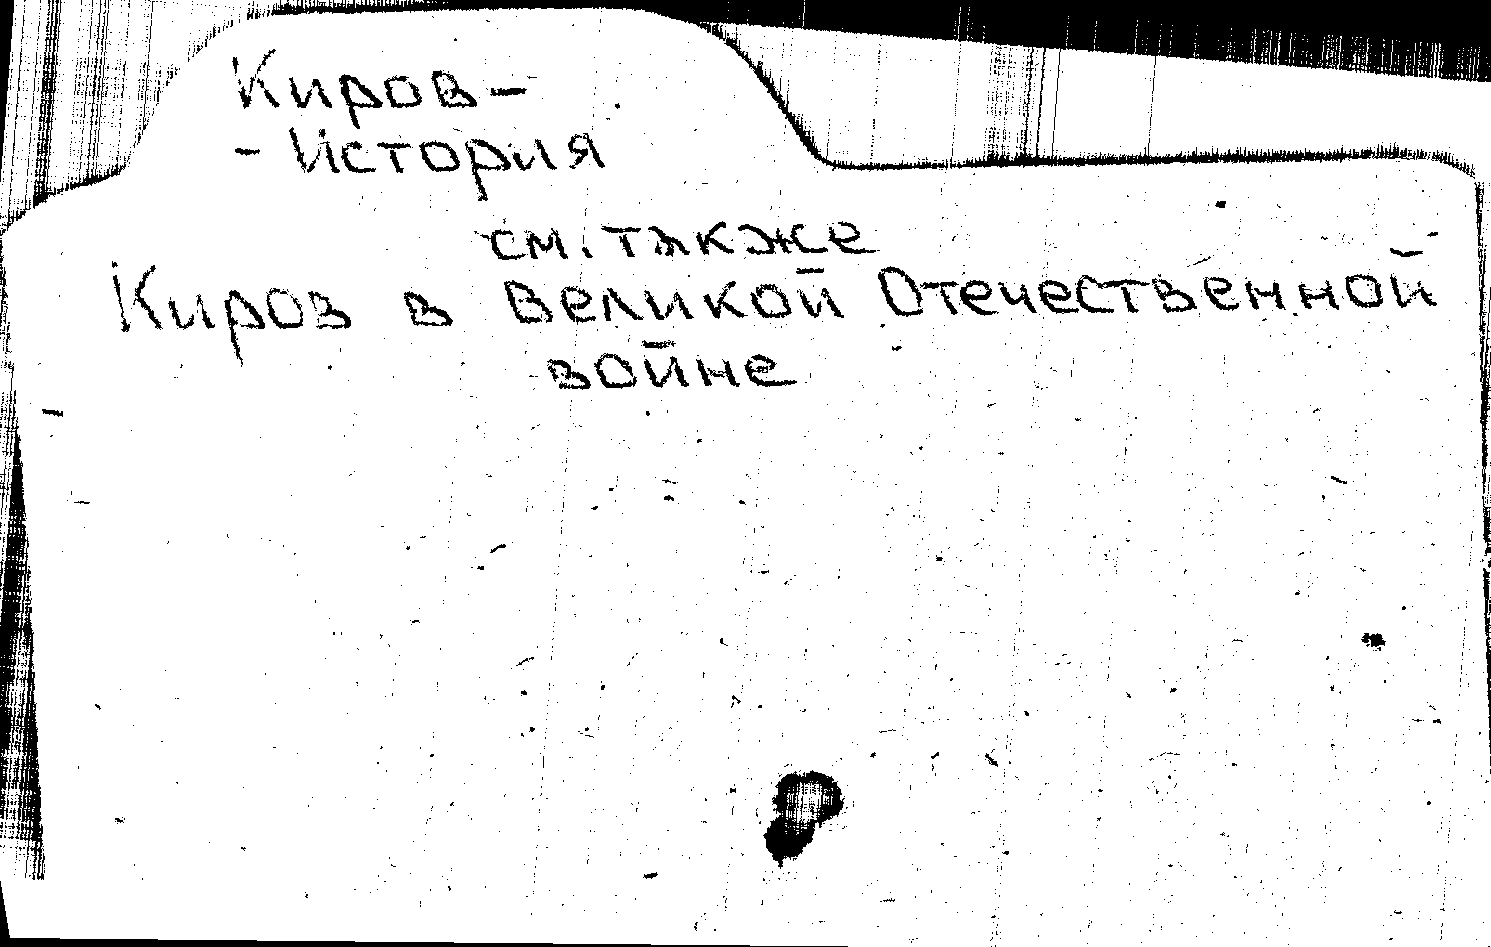 Киров-
- История
см. также
Киров в Великой Отечественной
войне